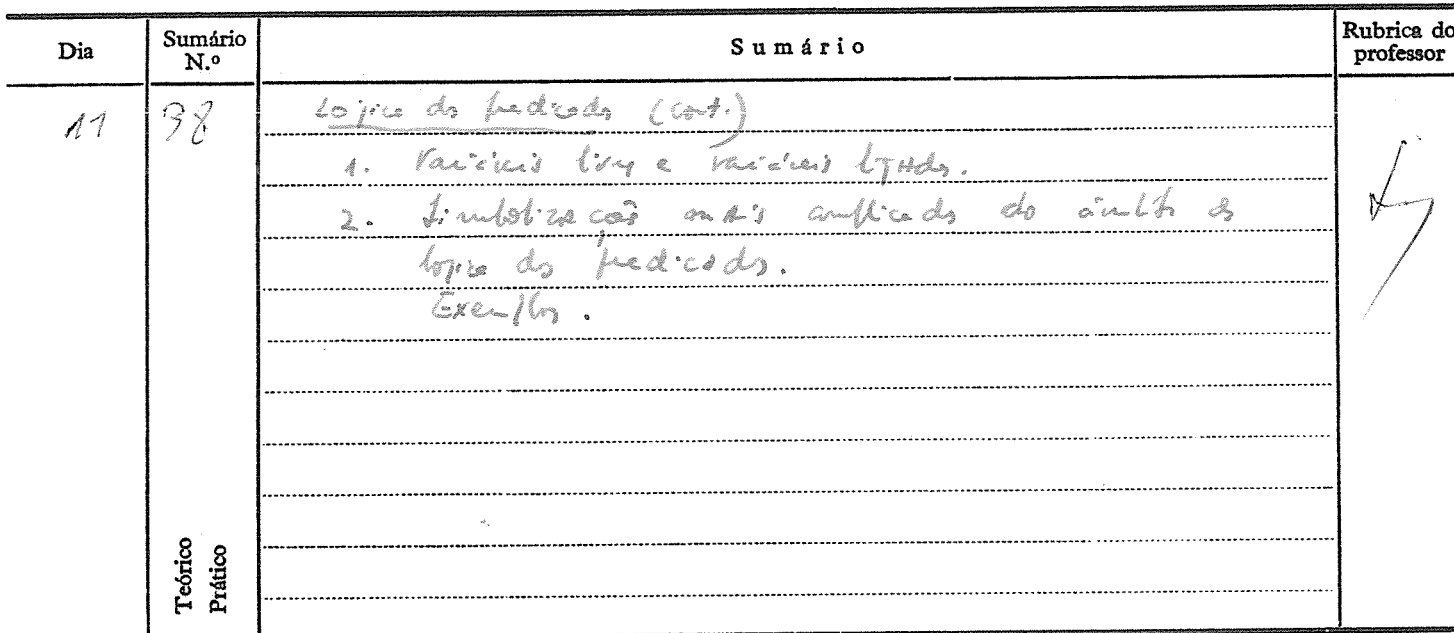 Dia
Sumário N.º
Sumário
Rubrica do professor
11
38
Logica dos predicados (cont.)
1. Variáveis livres e variáveis ligadas.
2. Simbolização mais complicada do âmbito da
logica dos predicados.
Exemplos.
Teórico
Prático